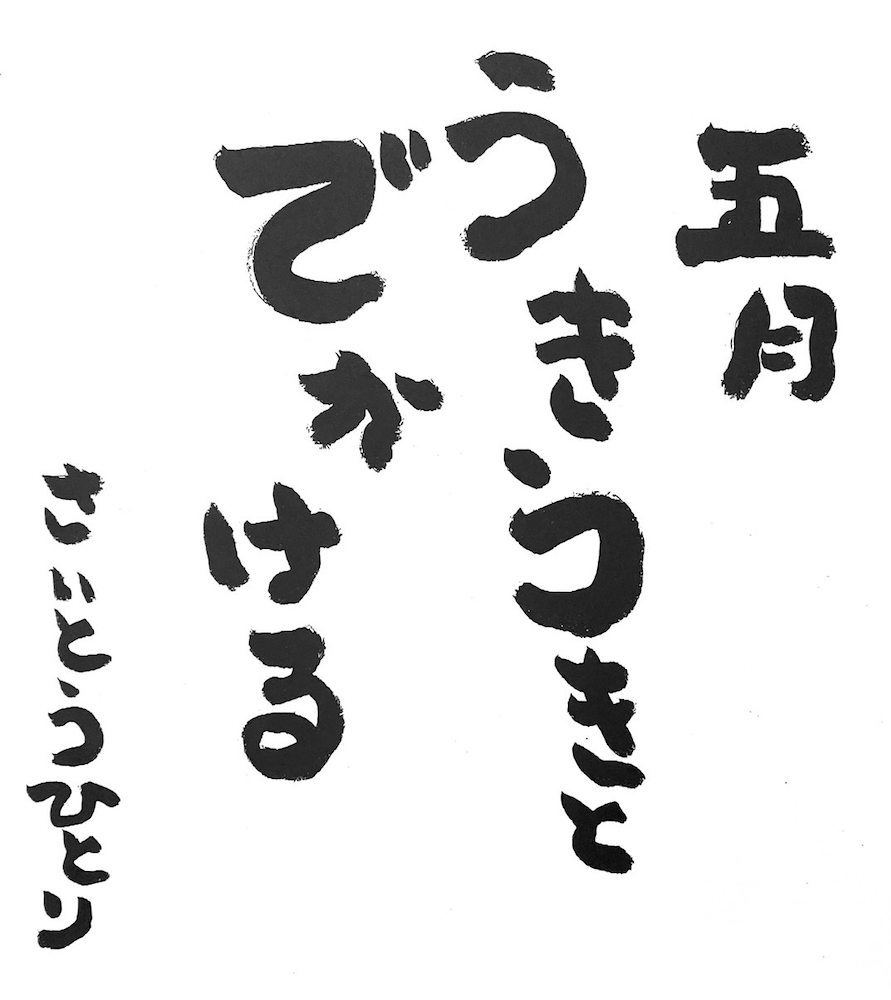 五月
うきうきと
でかける
さいとうひとり